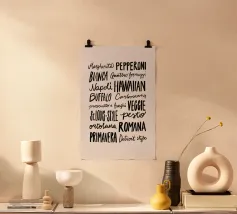 Margherita PEPPERONI
BIANCA Quattro formaggi
Napoli HAWAIIAN
BUFFALO Carbonara
prosciutto e funghi VEGGIE
STYLE pesto
ortolana ROMANA
PRIMAVERA Detroit style